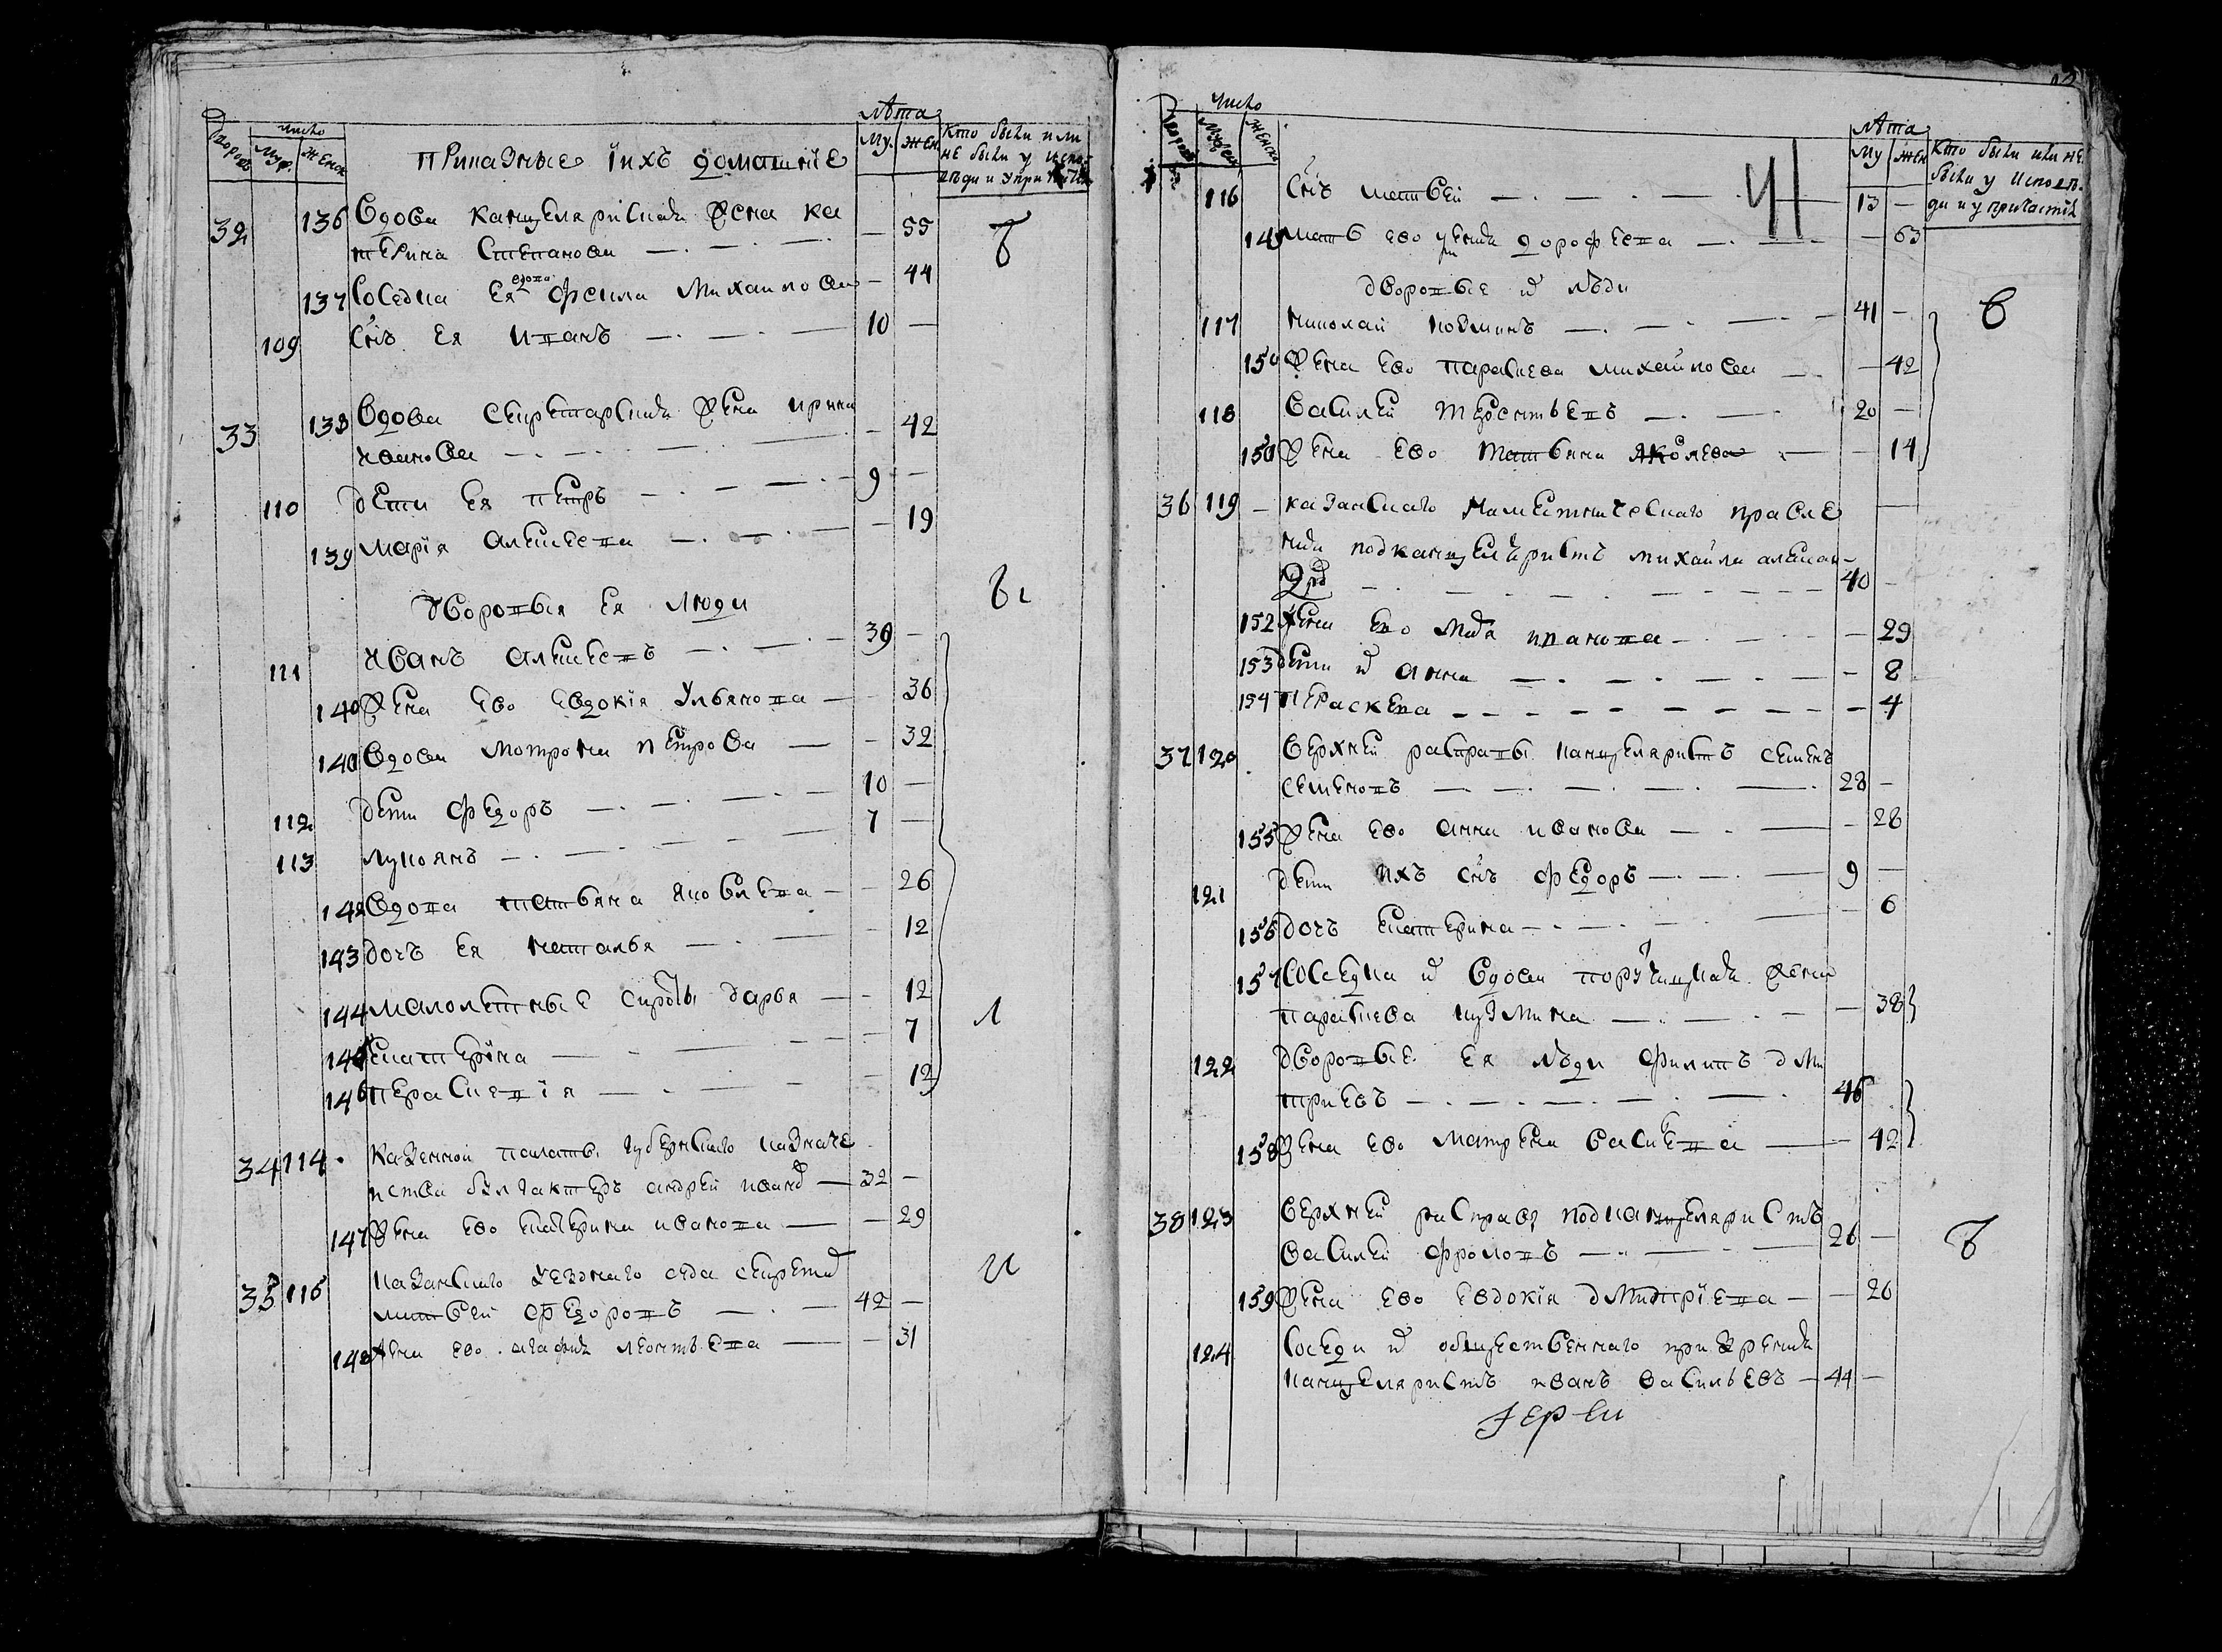 Дворовъ
число
Муж.
женск
приказные ихъ домашніе
лѣта
Му.
жен
Кто были или
не были у испо
вѣди и у причастія
32
136 вдова канцелярискаӕ жена ка
терина степанова — 55
137 соседка ея вдова Михаилова — 44
109 снъ ея иванъ 10 —
33 138 вдова секретарская жена ирина
иванова — 42
110 дети ея петръ 9 —
139 марїя алексеева — 19
дворовыя ея люди
111 иванъ алексеевъ 39 —
140 жена ево евдокїя ульянова — 36
140 вдова мотрона петрова — 32
112 дети федоръ 10 —
113 лукоянъ 7 —
142 вдова татьяна яковлева — 26
143 дочъ ея наталья — 12
144 малолетные сироты дарья — 12
145 екатерїна — 7
146 перасковїя — 12
34 114 казенной палаты губернскаго казначе
иства бухгалтеръ андрей иванов 32 —
147 жена ево екатерина иванова — 29
35 115 казанскаго уезднаго суда секретар
матвей федоровъ 42 —
148 жена ево агафия леонтьева — 31
число
дворовъ
мужеск
женскъ
лѣта
Му
жен
Кто были или не
были у исповѣ
ди и у причастія
116 снъ матвей 13 —
149 мать ево дорофеева — 63
дворовые их люди
117 николай козминъ 41 —
150 жена ево параскева михайлова — 42
118 василей терентьевъ 20 —
151 жена ево татьяна яковлева — 14
36 119 — казанскаго наместническаго правле
ния подканцеляристъ михайла алексан
дров 40 —
152 жена ево иванова — 29
153 дети их анна — 8
154 пераскева — 4
37 120 верхней расправы канцеляристъ семенъ
семеновъ 28 —
155 жена ево анна иванова — 28
121 дети ихъ снъ федоръ 9 —
156 дочъ екатерина — 6
157 соседка их вдова порутчицкая жена
параскева кузмина — 38
122 дворовые ея люди филипъ дми
триевъ 46
158 жена ево матрена василева — 42
38 123 верхней расправы подканцеляристъ
василей фроловъ 26 —
159 жена ево евдокїя дмитрїева — 26
124 соседи их общественнаго призрения
канцеляристъ иванъ васильевъ 44 —
іерей